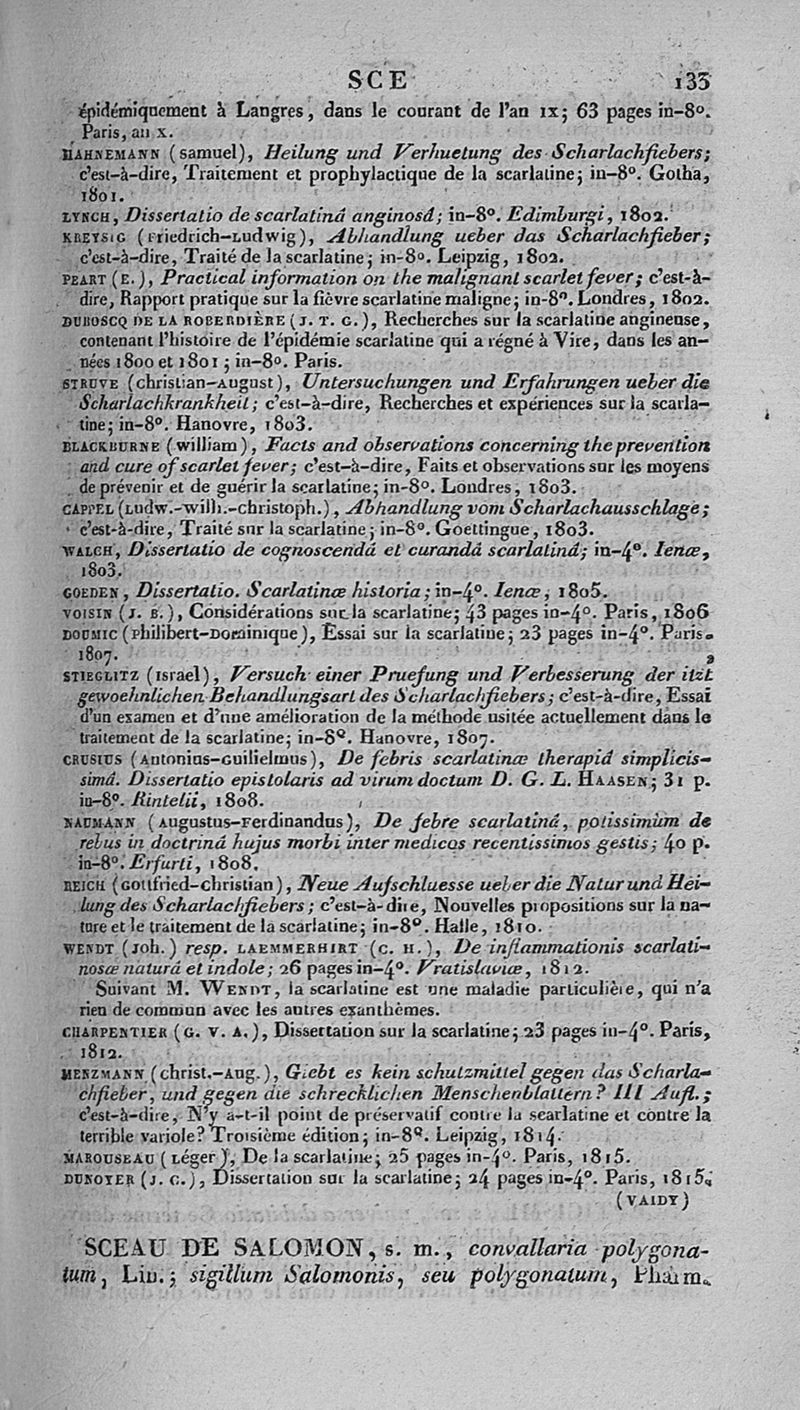 SCE 135
épidémiquement à Langres, dans le courant de l'an IX; 63 pages in-8°.
Paris, an X.
HAHNEMANN (samuel), Heilung und Verhuetung des Scharlachfiebers;
c'est-à-dire, Traitement et prophylactique de la scarlatine; in-8°. Gotha,
1801.
LYNCH, Dissertatio de scarlatinâ anginosâ; in-8°. Edimburgi, 1802.
KREYSIG (Friedrich-Ludwig), Abhandlung ueber das Scharlachfieber;
c'est-à-dire, Traité de la scarlatine; in-8°. Leipzig, 1802.
PEART (E.), Practical information on the malignant scarlet fever; c'est-à-
dire, Rapport pratique sur la fièvre scarlatine maligne; in-8°. Londres, 1802.
DUBOSCQ DE LA ROBERDIÈRE (J. T. G.), Recherches sur la scarlatine angineuse,
contenant l'histoire de l'épidémie scarlatine qui a régné à Vire, dans les an-
nées 1800 et 1801; in-8°. Paris.
STRUVE (christian-August), Untersuchungen und Erfahrungen ueber die
Scharlachkrankheit; c'est-à-dire, Recherches et expériences sur la scarla-
tine; in-8°. Hanovre, 1803.
BLACKBURNE (william), Facts and observations concerning the prevention
and cure of scarlet fever; c'est-à-dire, Faits et observations sur les moyens
de prévenir et de guérir la scarlatine; in-8°. Londres, 1803.
CAPPEL (Ludw.-wilh.-christoph.), Abhandlung vom Scharlachausschlage;
c'est-à-dire, Traité sur la scarlatine; in-8°. Goettingue, 1803.
WALCH, Dissertatio de cognoscendâ et curandâ scarlatinâ; in-4°. Ienæ,
1803.
GOEDEN, Dissertatio. Scarlatinæ historia; in-4°. Ienæ, 1805.
VOISIN (J. B.), Considérations sur la scarlatine; 43 pages in-4°. Paris, 1806
DOUMIC (Philibert-Dominique), Essai sur la scarlatine; 23 pages in-4°. Paris.
1807.
STIEGLITZ (Israel), Versuch einer Pruefung und Verbesserung der itzt
gewoehnlichen Behandlungsart des Scharlachfiebers; c'est-à-dire, Essai
d'un examen et d'une amélioration de la méthode usitée actuellement dans le
traitement de la scarlatine; in-8°. Hanovre, 1807.
CRUSIUS (Antonius-Guilielmus), De febris scarlatinæ therapiâ simplicis-
simâ. Dissertatio epistolaris ad virum doctum D. G. L. HAASEN; 31 p.
in-8°. Rintelii, 1808.
NAUMANN (Augustus-Ferdinandus), De febre scarlatinâ, potissimùm de
rebus in doctrinâ hujus morbi inter medicos recentissimos gestis; 40 p.
in-8°. Erfurti, 1808.
REICH (Gottfried-christian), Neue Aufschluesse ueber die Natur und Hei-
lung des Scharlachfiebers; c'est-à-dire, Nouvelles propositions sur la na-
ture et le traitement de la scarlatine; in-8°. Halle, 1810.
WENDT (Joh.) resp. LAEMMERHIRT (C. H.), De inflammationis scarlati-
nosæ naturâ et indole; 26 pages in-4°. Vratislaviæ, 1812.
Suivant M. WENDT, la scarlatine est une maladie particulière, qui n'a
rien de commun avec les autres exanthèmes.
CHARPENTIER (G. V. A.), Dissertation sur la scarlatine; 23 pages in-4°. Paris,
1812.
MENZMANN (christ.-Aug.), Giebt es kein schutzmittel gegen das Scharla-
chfieber, und gegen die schrecklichen Menschenblattern? III Aufl.;
c'est-à-dire, N'y a-t-il point de préservatif contre la scarlatine et contre la
terrible variole? Troisième édition; in-8°. Leipzig, 1814.
MAROUSEAU (Léger), De la scarlatine; 25 pages in-4°. Paris, 1815.
DUNOYER (J. C.), Dissertation sur la scarlatine; 24 pages in-4°. Paris, 1815.
(VAIDY)
SCEAU DE SALOMON, s. m., convallaria polygona-
tum, Lin.; sigillum Salomonis, seu polygonatum, Pharm.